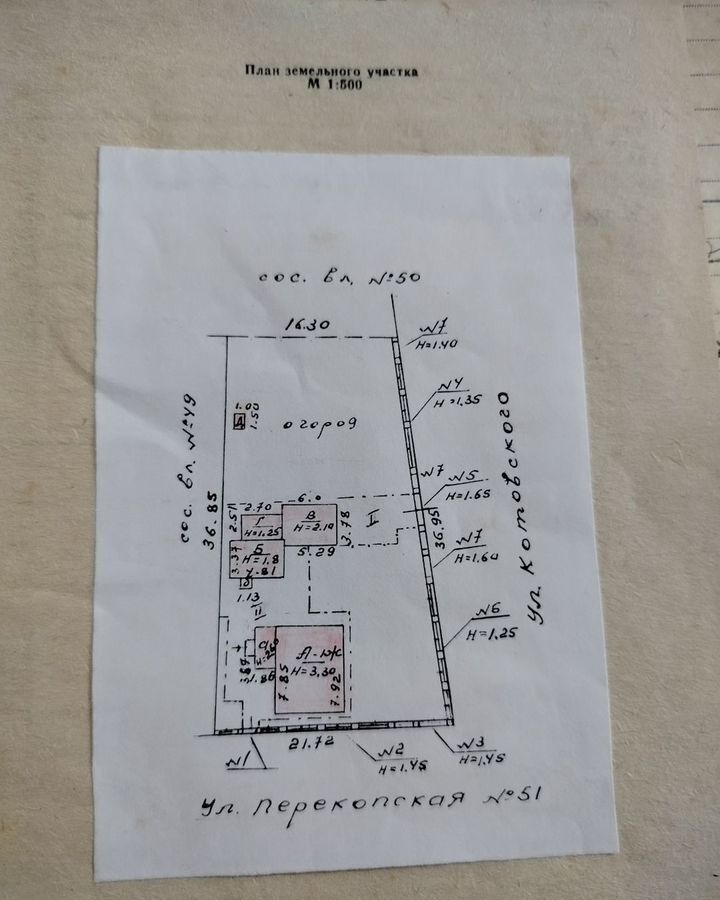 План земельного участка
М 1:500
сос. вл. №50
16.30
№7
H=1.40
№4
H=1.35
сос. вл. №49
36.85
1.00
1.50
Д
огород
ул. Котовского
№7
№5
H=1.65
6.0
2.70
2.51
Г
H=1.25
В
H=2.10
3.78
II
36.95
№7
H=1.60
Б
H=1.8
3.37
4.81
5.29
б
1.13
II
№6
H=1.25
а
1.86
А-ж
H=3.30
7.85
7.92
21.72
№1
№2
H=1.45
№3
H=1.45
Ул. Перекопская №51